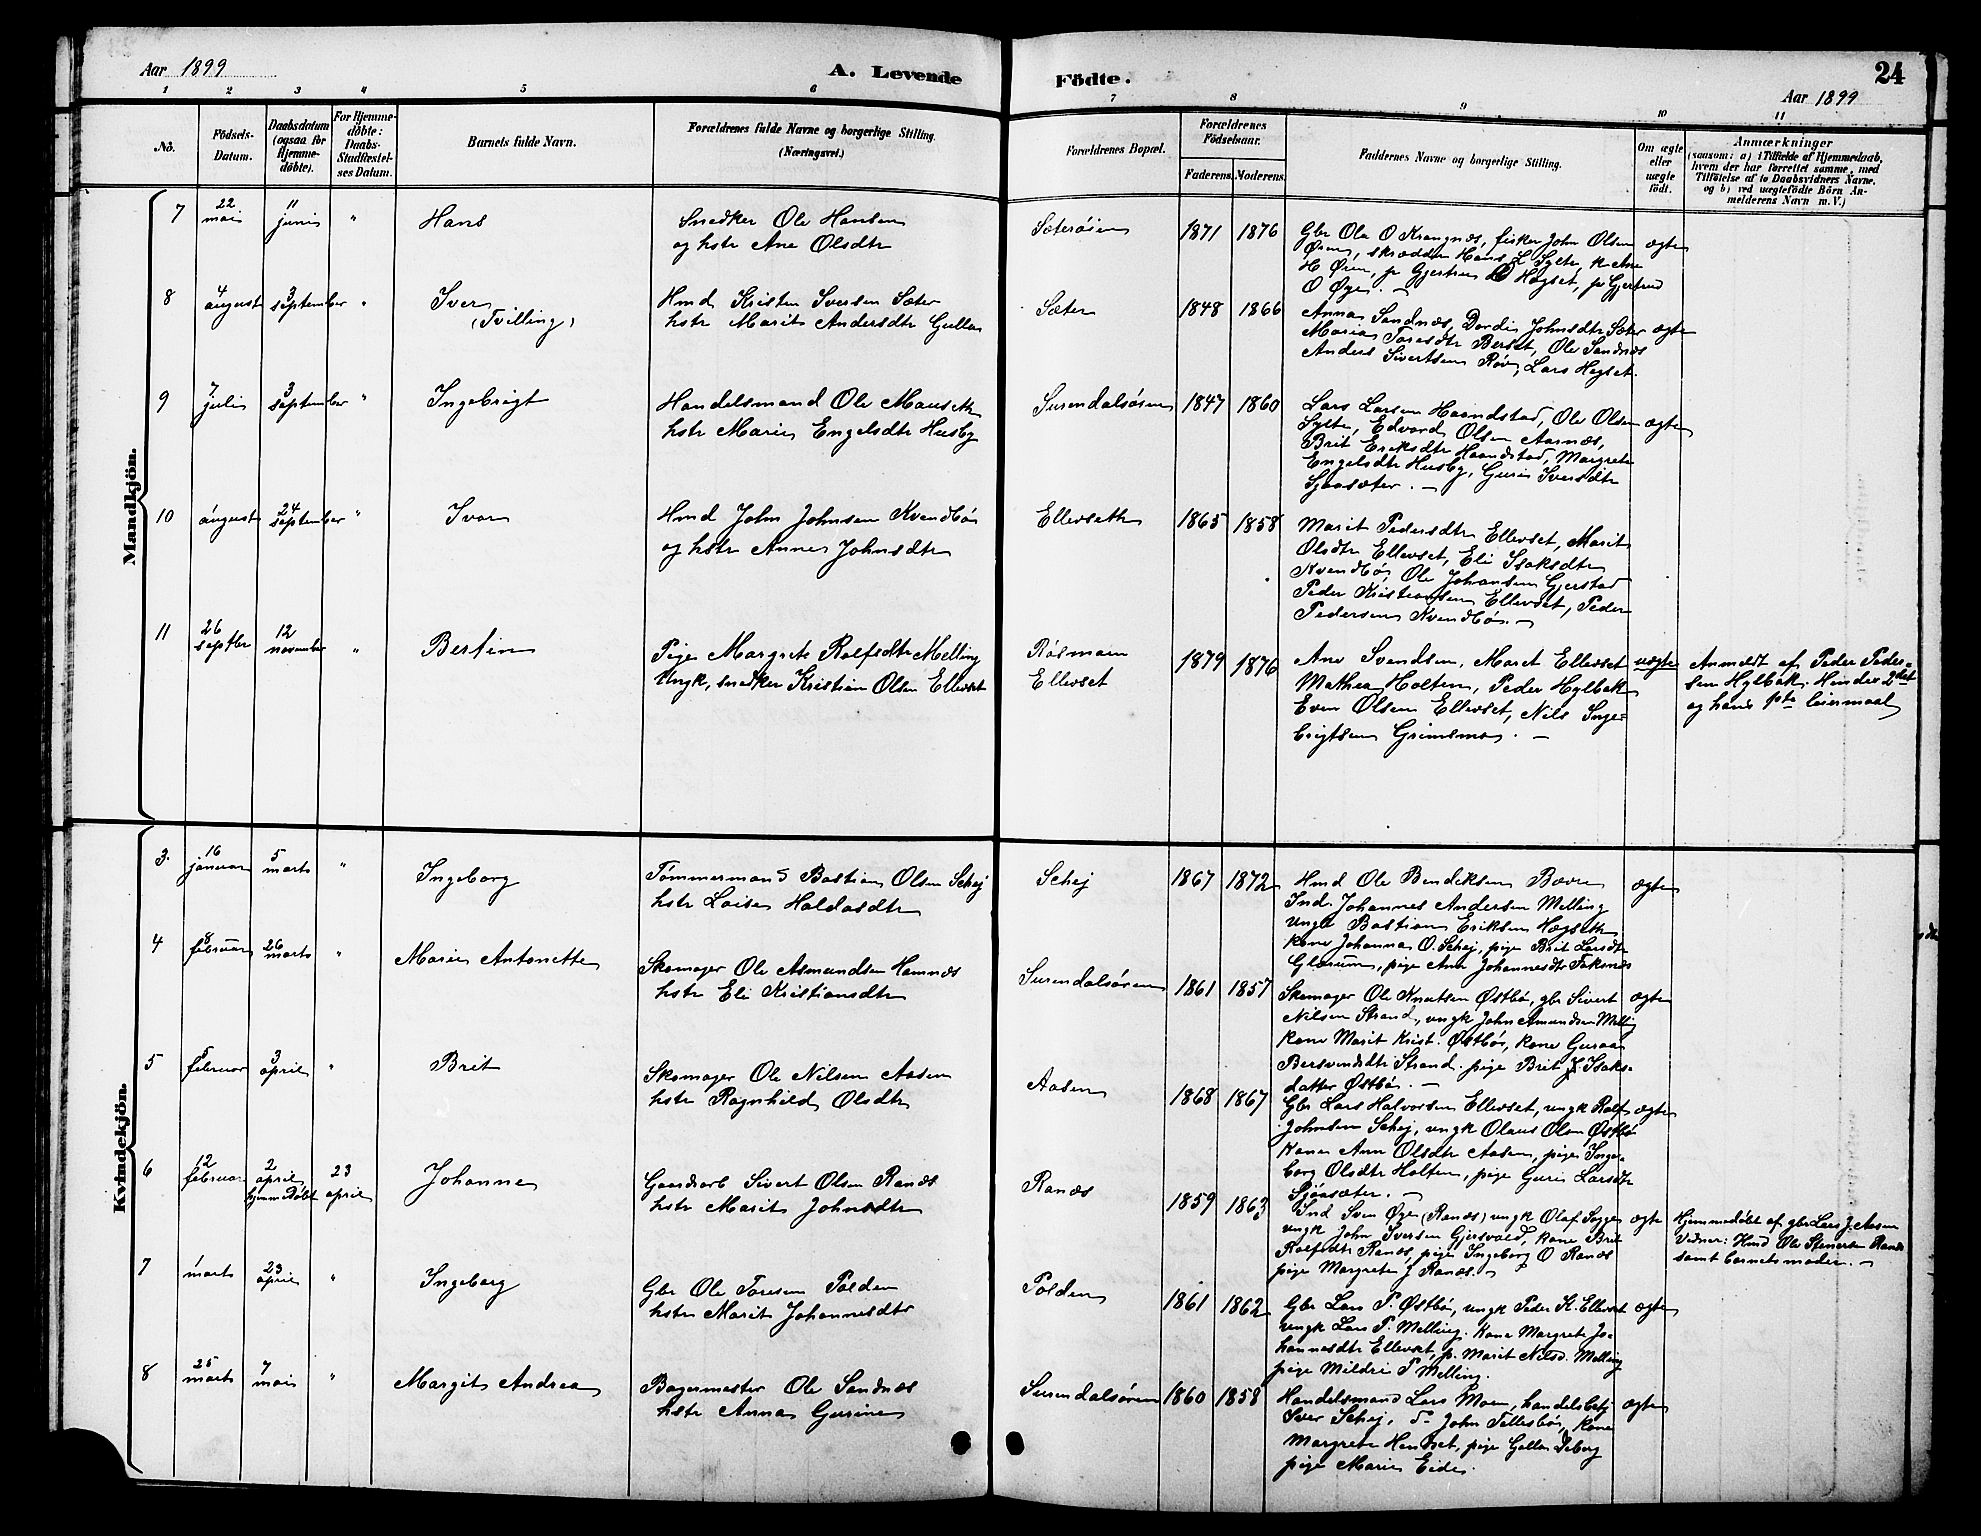 Aar 1899
A. Levende
Födte.
24
Aar 1899
1 2 3 4 5 6 7 8 9 10 11
No.
Födsels-Datum.
Daabsdatum (ogsaa for Hjemme-døbte).
For Hjemme-døbte: Daabs-Stadfæstel-ses Datum.
Barnets fulde Navn.
Forældrenes fulde Navne og borgerlige Stilling. (Næringsvei.)
Forældrenes Bopæl.
Forældrenes Födselsaar.
Faderens. Moderens.
Faddernes Navne og borgerlige Stilling.
Om ægte eller uægte födt.
Anmærkninger
(saasom: a) i Tilfælde af Hjemmedaab, hvem der har forrettet samme, med Tilföielse af to Daabsvidners Navne, og b) ved uægtefödte Börn An-melderens Navn m. V.)
Mandkjön.
7 22 mai 11 juni " Hans
Snedker Ole Hansen
og hstr Ane Olsdtr
Sæterøien 1871 1876
Gbr Ola O Krangnæs, fisker John Olsen
Øren, skrædder Hans L Sylte, k Ane
H Øren, p Gjertrud O Hægset, p Gjertrud
O Øye. —
ægte
8 4 august 3 september " Iver
(Tvilling)
Hmd Kristen Iversen Sæter
hstr Marit Andersdtr Gulla
Sæter 1848 1866
Anna Sandnæs, Dordi Johnsdtr Sæter
Maria Toresdtr Berset, Ole Sandnæs
Anders Sivertsen Røv, Lars Hegset.
ægte
9 7 juli 3 september " Ingebrigt
Handelsmand Ole Mauseth
hstr Marie Engelsdtr Husby
Surendalsøren 1847 1860
Lars Larsen Haandstad, Ole Olsen
Sylte, Edvard Olsen Aarnæs,
Brit Eriksdtr Haandstad, Margrete
Engelsdtr Husby, Guri Iversdtr
Sjaasæter. —
ægte
10 august 24 september " Ivar
Hmd John Johnsen Kvendbø
og hstr Anne Johnsdtr
Ellevseth 1865 1858
Marit Pedersdtr Ellevset, Marit
Olsdtr Ellevset, Eli Isaksdtr
Kvendbø, Ole Johansen Gjerstad
Peder Kristiansen Ellevset, Peder
Pedersen Kvendbø. —
11 26 septbr 12 november " Bertin
Pige Margrete Rolfsdtr Melling
Ungk, snedker Kristian Olsen Ellevset
Røsmoen
Ellevset
1879 1876
Ane Svendsen, Maret Ellevset
Mathea Holten, Peder Hylbak
Even Olsen Ellevset, Nils Inge-
brigtsen Grimsmo. —
uægte
Anmeldt af Peder Peder-
sen Hylbak. Hendes 2det
og hans 1ste leiermaal
Kvindekjön.
3. 16 januar 5 marts " Ingeborg
Tömmermand Bastian Olsen Schej
hstr Loise Haldosdtr
Schej 1867 1872
Hmd Ole Bendiksen Bævre
Ind. Johannes Andersen Melling
Ungk Bastian Eriksen Hægseth
Kone Johanna O. Schej, pige Brit Larsdtr
Glærum, pige Ane Johannesdtr Faksnæs
ægte
4 8 februar 26 marts " Marie Antonette
Skomager Ole Asmundsen Hamnes
hstr Eli Kristiansdtr
Surendalsøren 1861 1857
Skomager Ole Knutsen Østbø, gbr Sivert
Nilsen Strand, ungk John Amundsen Melling
Kone Marit Krist. Østbø, kone Guraa
Bersvendsdtr Strand. pige Brit J Isaks-
datter Østbø. —
ægte
5 5 februar 3 april " Brit
Skomager Ole Nilsen Aasen
hstr Ragnhild Olsdtr
Aasen 1868 1867
Gbr Lars Halvorsen Ellevset, ungk Rolf
Johnsen Schej, ungk Olaus Olsen Østbø
Kone Ane Olsdtr Aasen, pige Inge-
borg Olsdtr Holten, pige Guri Larsdtr
Sjöasæter. —
ægte
6 12 februar 2 april hjemmedøbt 23 april Johanne
Gaardarb Sivert Olsen Ranæs
hstr Marit Johnsdtr
Ranæs 1859 1863
Ind Sven Øye (Ranæs) ungk Olaf Sogge
ungk John Iversen Gjersvold, kone Brit
Rolfsdtr Ranæs, pige Ingeborg O Ranæs
pige Margrete J Ranæs. —
ægte
Hjemmedøbt af gbr Lars J. Aasen
Vidner: Hmd Ole Stenersen Ranæs
samt barnets moder. —
7 marts 23 april " Ingeborg
Gbr Ole Toresen Polden
hstr Marit Johannesdtr
Polden 1861 1862
Gbr Lars P. Østbø, ungk Peder K. Ellevset
ungk Lars P. Melling. Kone Margrete Jo-
hannesdtr Ellevset, p. Marit Nilsd. Melling
pige Mildri P Melling.
ægte
8 25 marts 7 mai " Margit Andrea
Bagermester Ole Sandnæs
hstr Anna Gurine
Surendalsøren 1860 1858
Handelsmand Lars Moen, handelsbetj
Iver Schej, d- John Tellesbø, kone
Margrete Henset, pige Galla Deberg
pige Marie Eide.
ægte